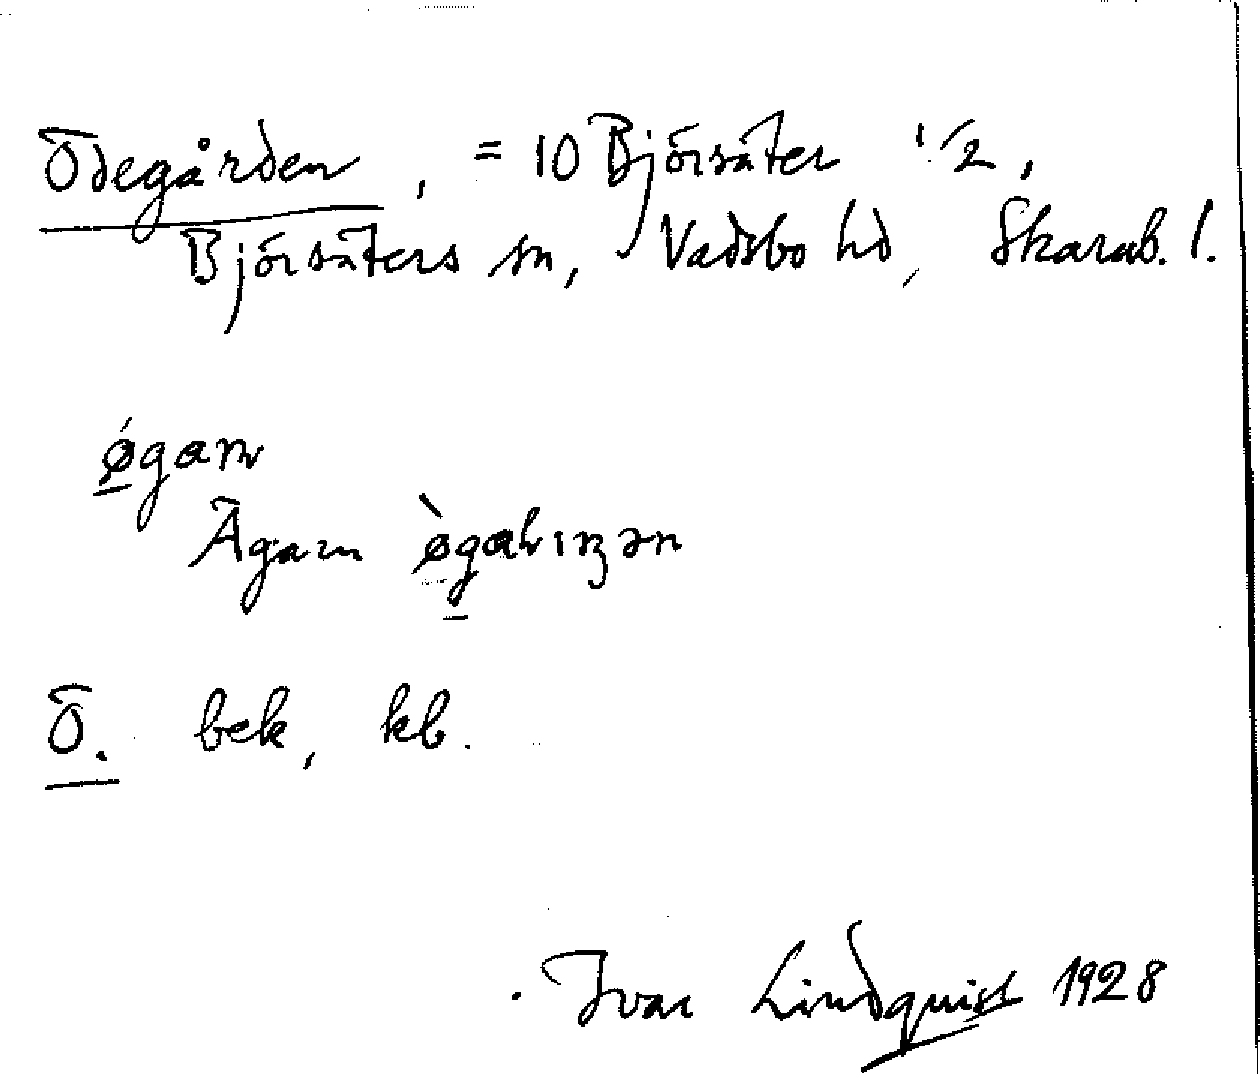 Ödegården, = 10 Björsäter 1/2,
Björsäters sn, Vadsbo hd, Skarab. l.
øgaɳ
Ägarn
Ö. bek, kb.
Ivar Lindquist 1928